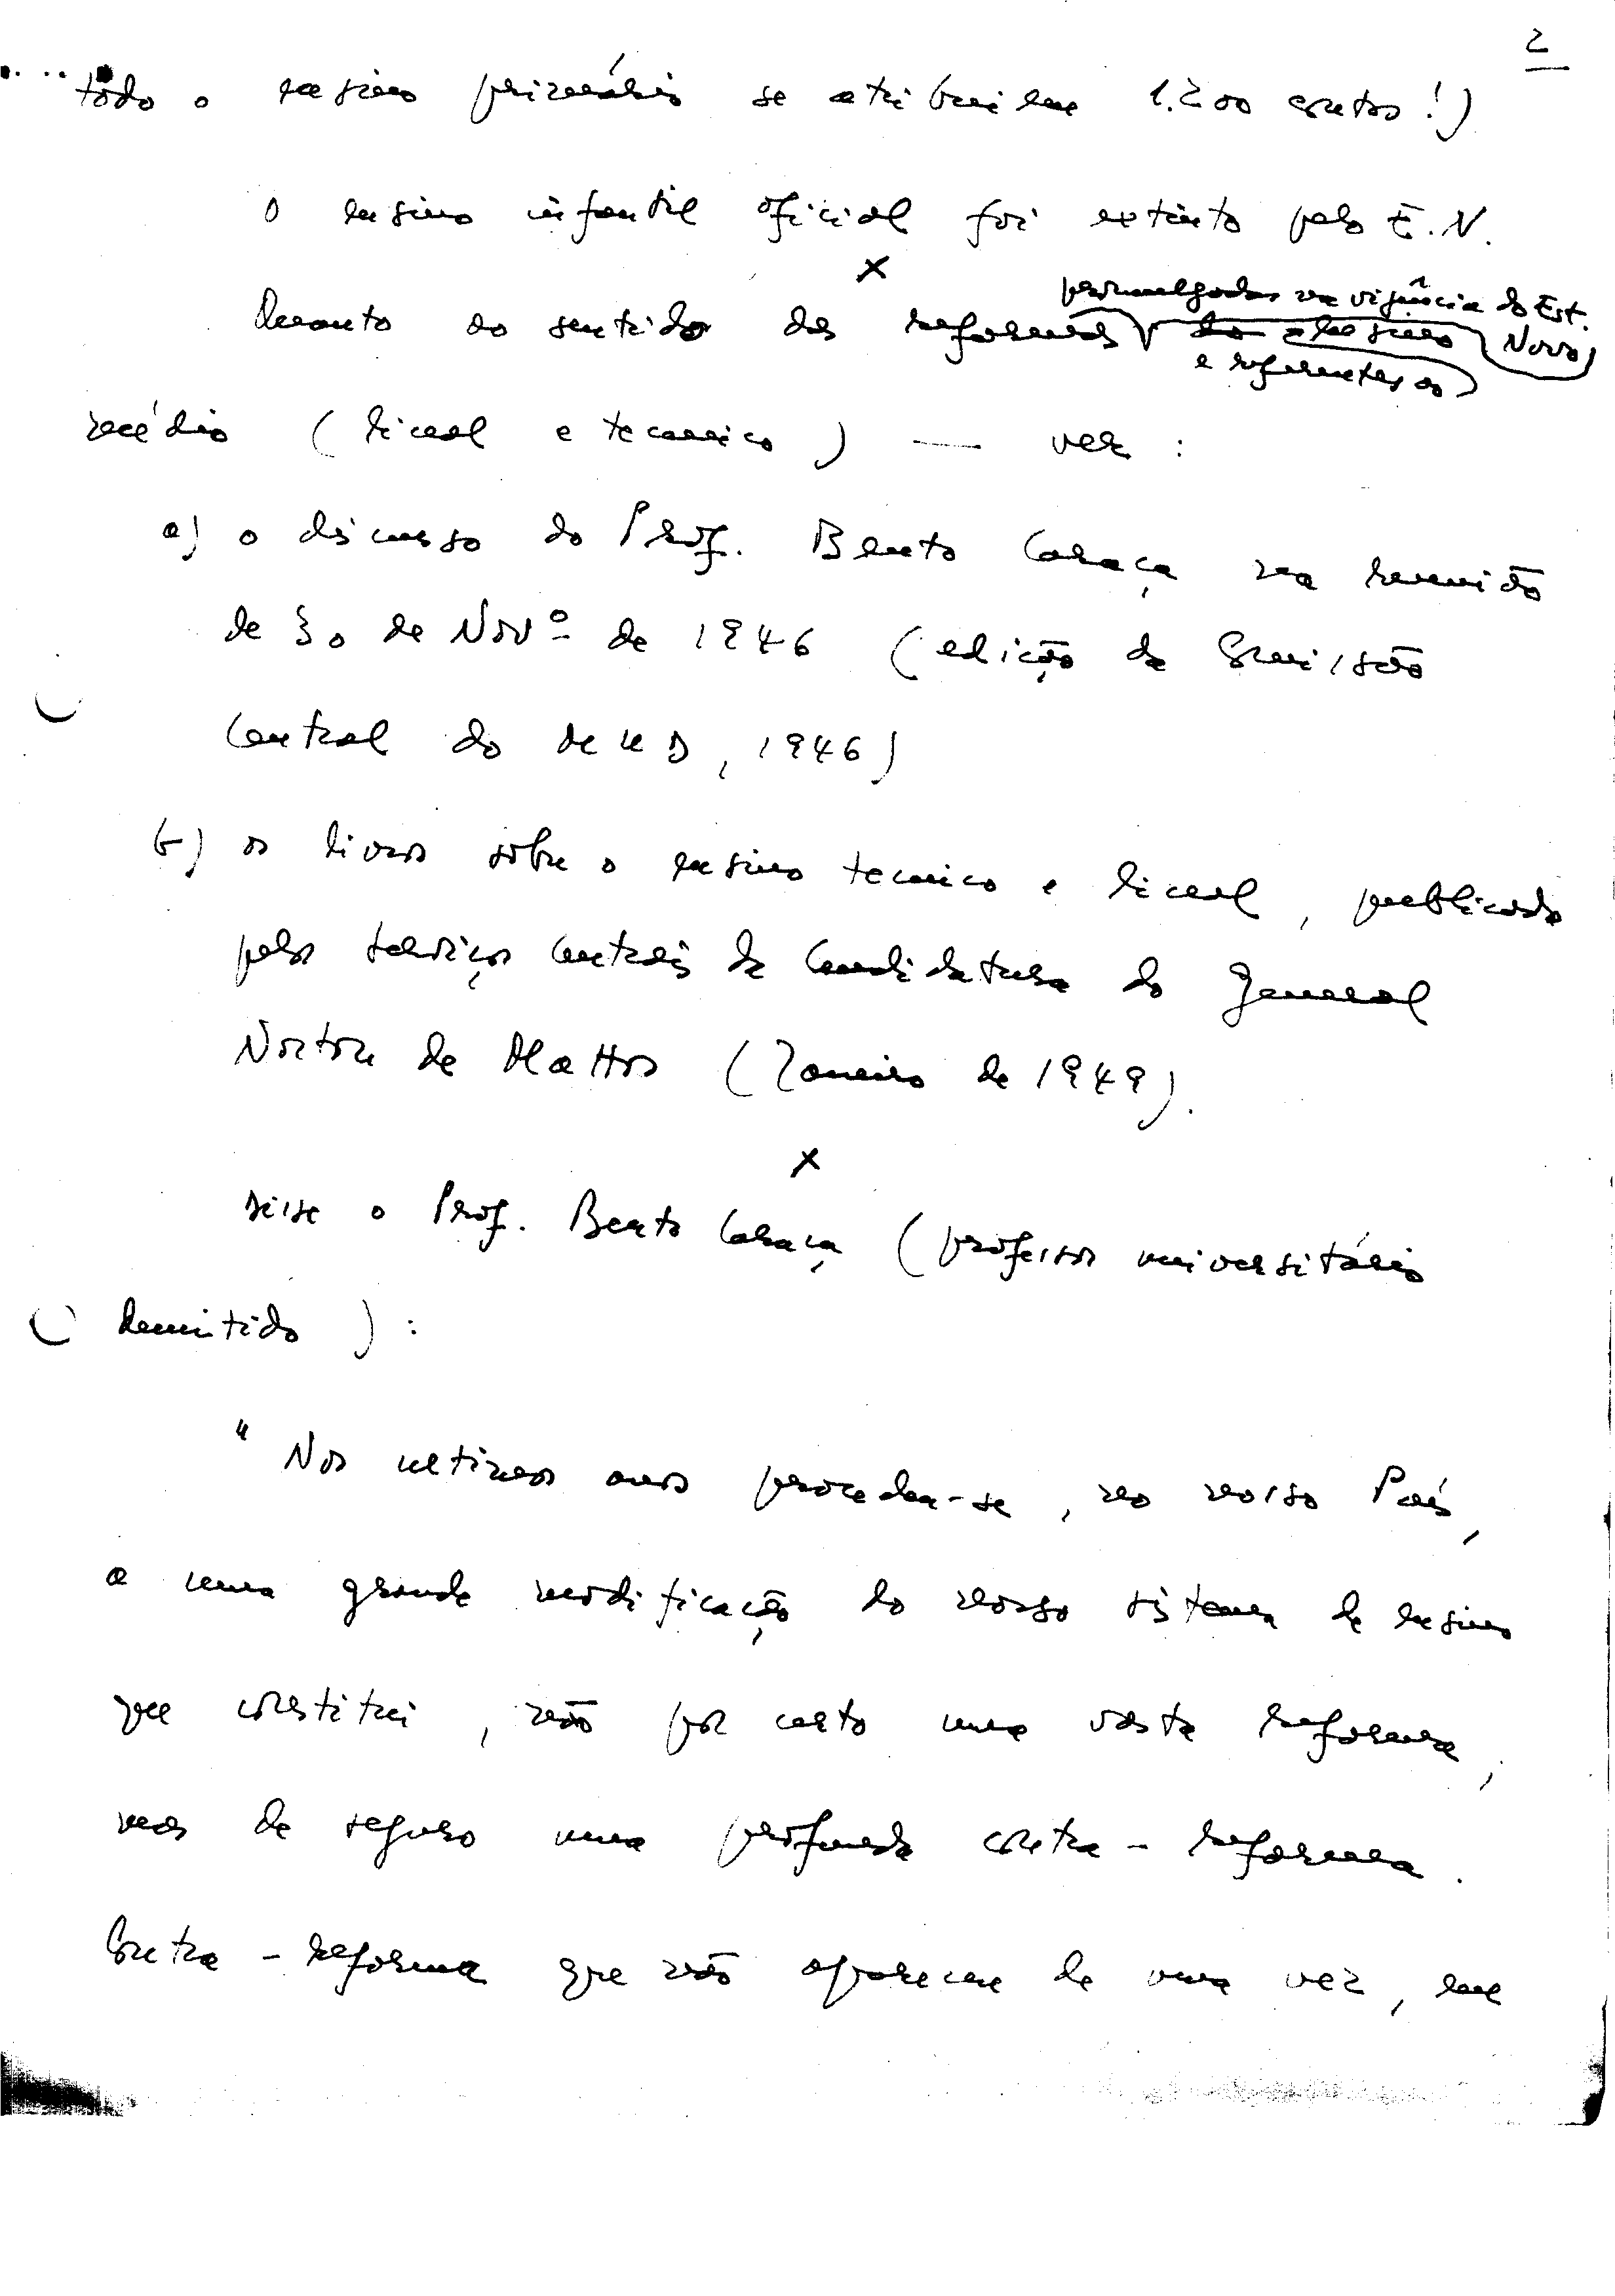 2
todo o ensino primário se atribuiem 1.200 contos!)
O ensino infantil oficial foi extinto pelo E.N.
x
promulgadas na vigência do Est.
Quanto ao sentido das reformas do ensino Novo
e referentes ao
médio (liceal e tecnnico) — ver:
a) o discurso do Prof. Bento Caraça na reunião
de 30 de Novº de 1946 (edição da Comissão
Central do MUD, 1946)
b) os livros sobre o ensino tecnico e liceal, publicados
pelos serviços centrais da Candidatura do General
Norton de Mattos (Janeiro de 1949).
x
Disse o Prof. Bento Caraça (professor universitário
demitido):
"Nos ultimos anos procedeu-se, no nosso País,
a uma grande modificação do nosso sistema de ensino
que constitui, não por certo uma vasta reforma,
mas de seguro uma profunda contra-reforma.
Contra-reforma que não apareceu de uma vez, em